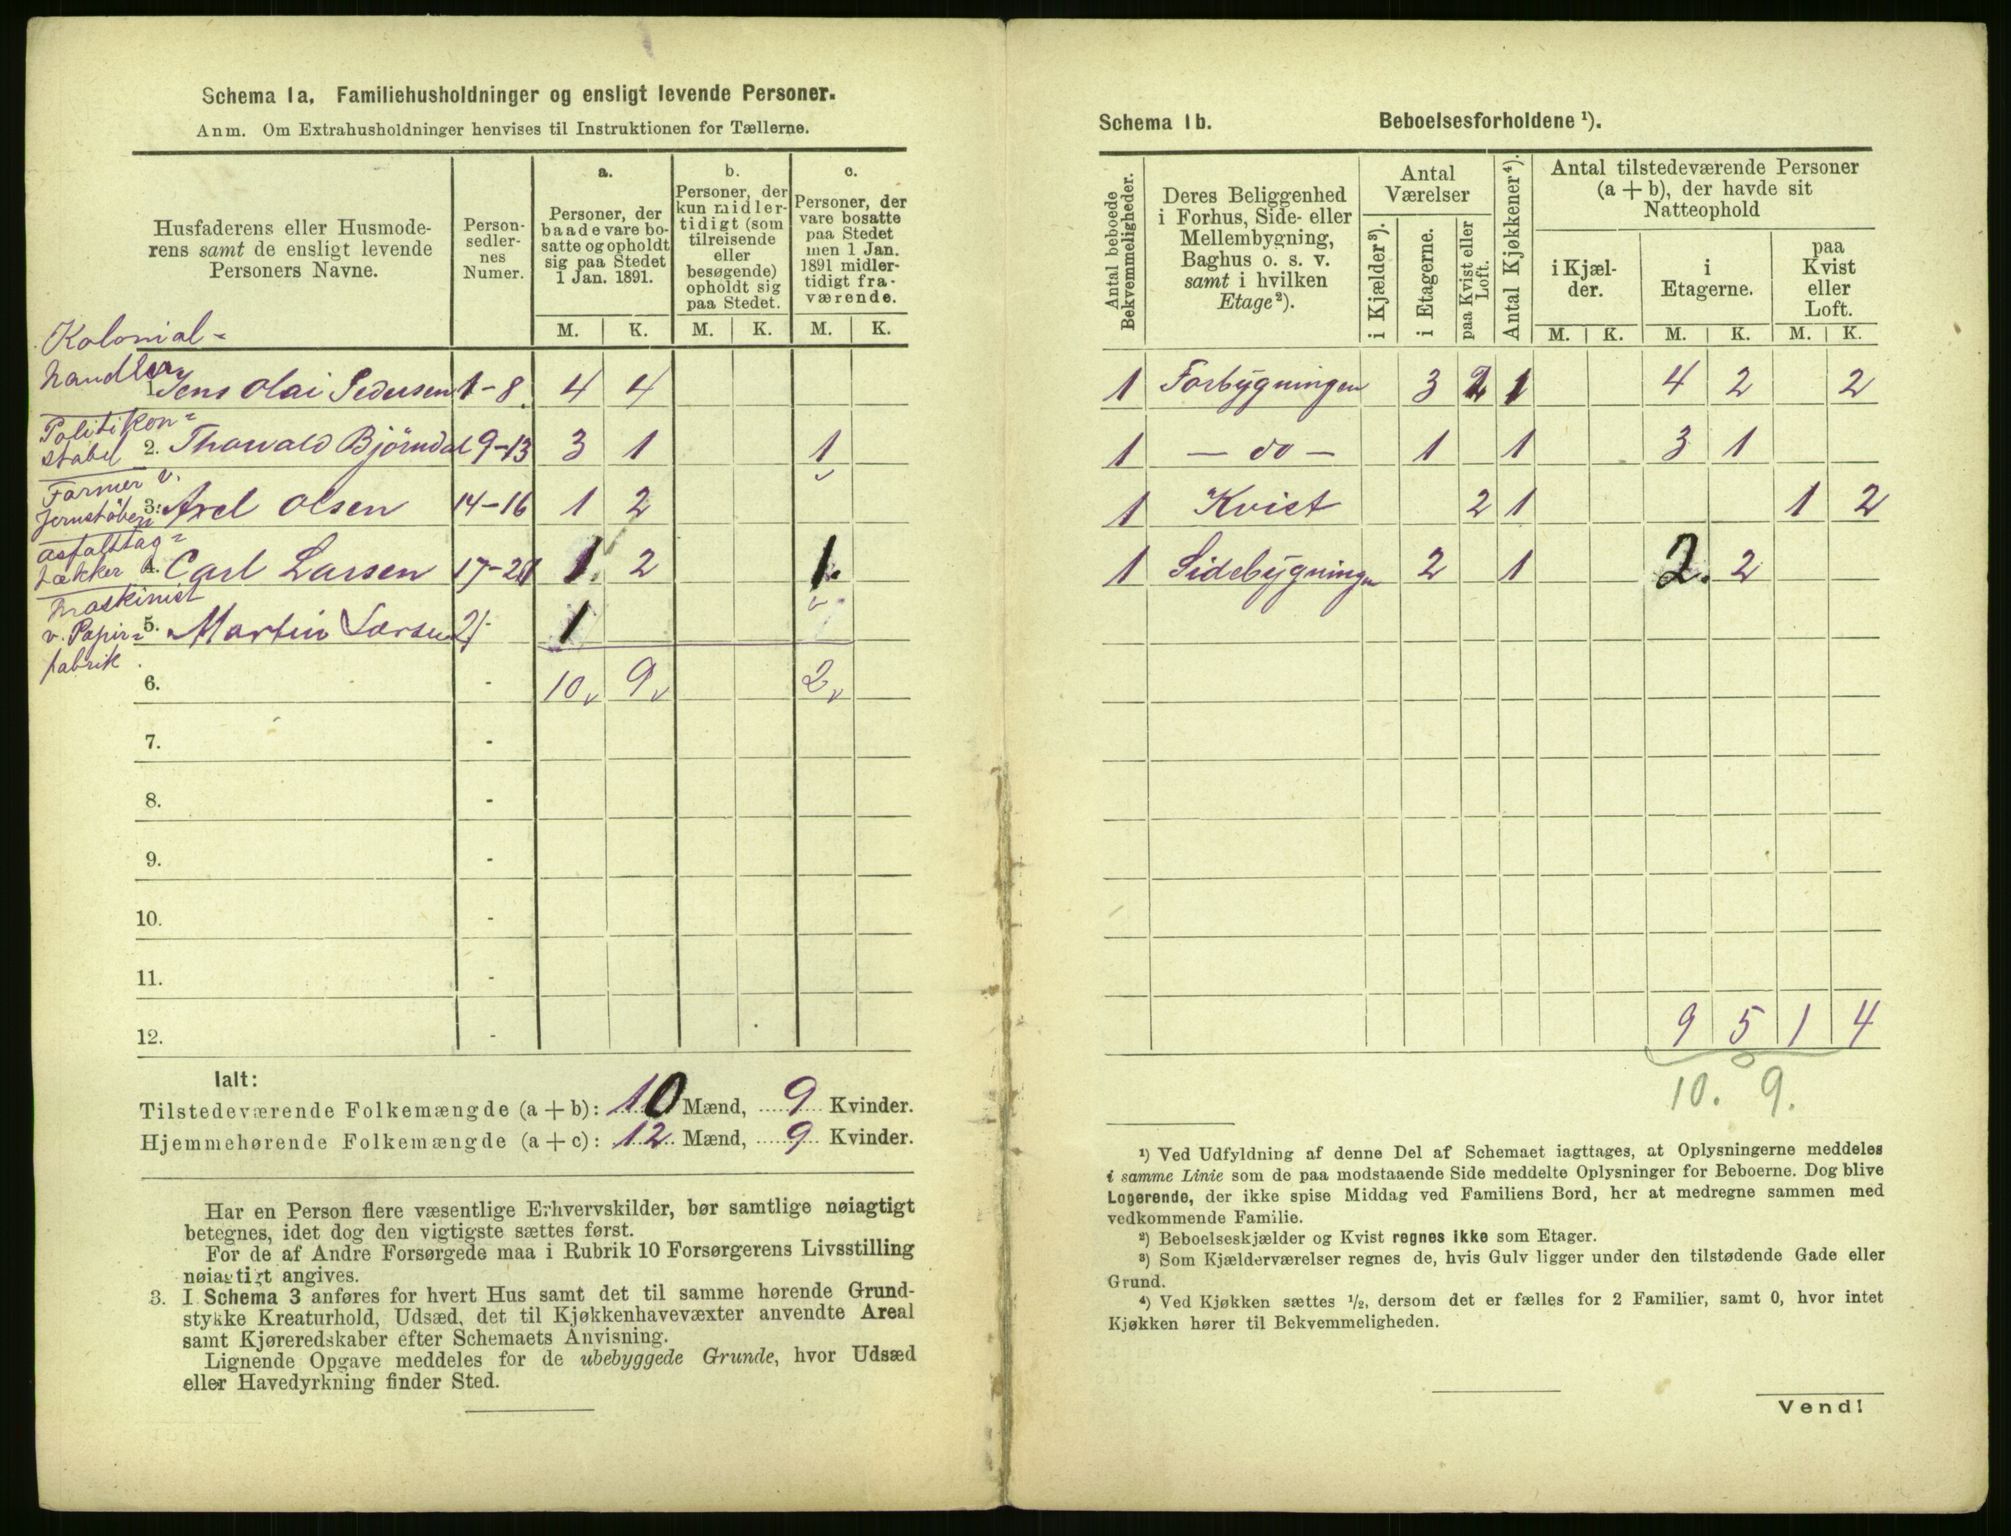 Schema 1a. Familiehusholdninger og ensligt levende Personer.
Anm. Om Extrahusholdninger henvises til Instruktionen for Tællerne.
Husfaderens eller Husmoderens samt de ensligt levende Personers Navne.
Person-sedler-nes Numer.
a. Personer, der baade vare bosatte og opholdt sig paa Stedet 1 Jan. 1891.
b. Personer, der kun midlertidigt (som tilreisende eller besøgende) opholdt sig paa Stedet.
c. Personer, der vare bosatte paa Stedet men 1 Jan. 1891 midlertidigt fraværende.
M. K. M. K. M. K.
Kolonial-
handler
1. Jens Olai Pedersen 1-8. 4 4
Politikon=
stabel 2. Thorvald Bjørndal 9-13 3 1 1
Former v.
Jernstøberi 3. Axel Olsen 14-16 1 2
Asfalttag=
tækker 4. Carl Larsen 17-20 1. 2 1.
Maskinist
v. Papir= 5. Martin Larsen 21- 1
fabrik
6. - 10 9 2
7. -
8. -
9. -
10. -
11. -
12. -
Ialt:
Tilstedeværende Folkemængde (a + b): 10 Mænd, 9 Kvinder.
Hjemmehørende Folkemængde (a + c): 12 Mænd, 9 Kvinder.
Har en Person flere væsentlige Erhvervskilder, bør samtlige nøiagtigt
betegnes, idet dog den vigtigste sættes først.
For de af Andre Forsørgede maa i Rubrik 10 Forsørgerens Livsstilling
nøiagtigt angives.
3. I Schema 3 anføres for hvert Hus samt det til samme hørende Grund-
stykke Kreaturhold, Udsæd, det til Kjøkkenhavevæxter anvendte Areal
samt Kjøreredskaber efter Schemaets Anvisning.
Lignende Opgave meddeles for de ubebyggede Grunde, hvor Udsæd
eller Havedyrkning finder Sted.
Schema 1b. Beboelsesforholdene ¹).
Antal beboede Bekvemmeligheder.
Deres Beliggenhed i Forhus, Side- eller Mellembygning, Baghus o. s. v. samt i hvilken Etage²).
Antal Værelser
i Kjælder³).
i Etagerne.
paa Kvist eller Loft.
Antal Kjøkkener⁴).
Antal tilstedeværende Personer (a + b), der havde sit Natteophold
i Kjælder.
i Etagerne.
paa Kvist eller Loft.
M. K. M. K. M. K.
1 Forbygningen 3 2 1 4 2 2
1 - do - 1 1 3 1
1 Kvist 2 1 1 2
1 Sidebygningen 2 1 2. 2
9 5 1 4
10. 9.
¹) Ved Udfyldning af denne Del af Schemaet iagttages, at Oplysningerne meddeles
i samme Linie som de paa modstaaende Side meddelte Oplysninger for Beboerne. Dog blive
Logerende, der ikke spise Middag ved Familiens Bord, her at medregne sammen med
vedkommende Familie.
²) Beboelseskjælder og Kvist regnes ikke som Etager.
³) Som Kjælderværelser regnes de, hvis Gulv ligger under den tilstødende Gade eller
Grund.
⁴) Ved Kjøkken sættes ½, dersom det er fælles for 2 Familier, samt 0, hvor intet
Kjøkken hører til Bekvemmeligheden.
Vend!